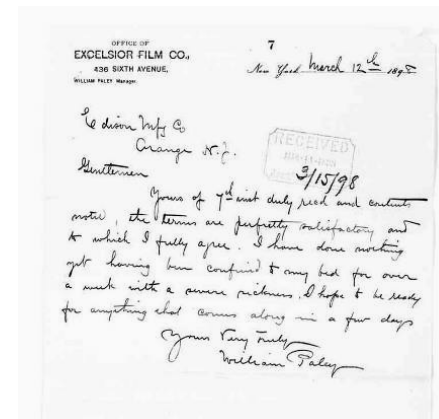 OFFICE OF
EXCELSIOR FILM CO.,
436 SIXTH AVENUE,
WILLIAM PALEY Manager.
7
New York March 12th 1898
Edison Mfg Co
Orange N.J.
Gentlemen
RECEIVED
3/15/98
Yours of 7th inst duly recd and contents
noted, the terms are perfectly satisfactory and
to which I fully agree. I have done nothing
yet having been confined to my bed for over
a week with a severe sickness. I hope to be ready
for anything that comes along in a few days
Yours Very Truly
William Paley